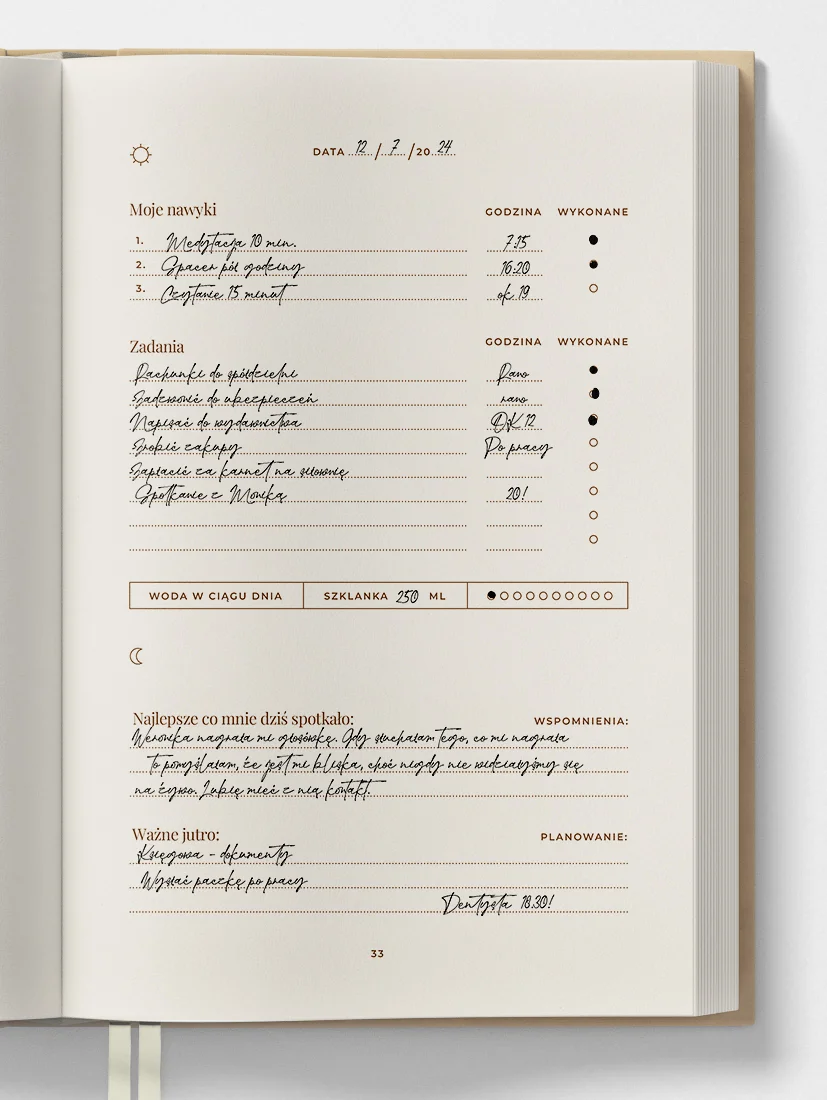 DATA 12 / 7 / 20 24
Moje nawyki GODZINA WYKONANE
1. Medytacja 10 min. 7:15
2. Spacer pół godziny 16:20
3. Czytanie 15 minut ok. 19
Zadania GODZINA WYKONANE
Rachunki do spółdzielni Rano
Zadzwonić do ubezpieczeń rano
Napisać do wydawnictwa OK 12
Zrobić zakupy Po pracy
Zapłacić za karnet na siłownię
Spotkanie z Moniką 20!
WODA W CIĄGU DNIA SZKLANKA 250 ML
Najlepsze co mnie dziś spotkało: WSPOMNIENIA:
Weronika nagrała mi głosówkę. Gdy słuchałam tego, co mi nagrała
to pomyślałam, że jest mi bliska, choć nigdy nie widziałyśmy się
na żywo. Lubię mieć z nią kontakt.
Ważne jutro: PLANOWANIE:
Księgowa - dokumenty
Wysłać paczkę po pracy
Dentysta 18.30!
33